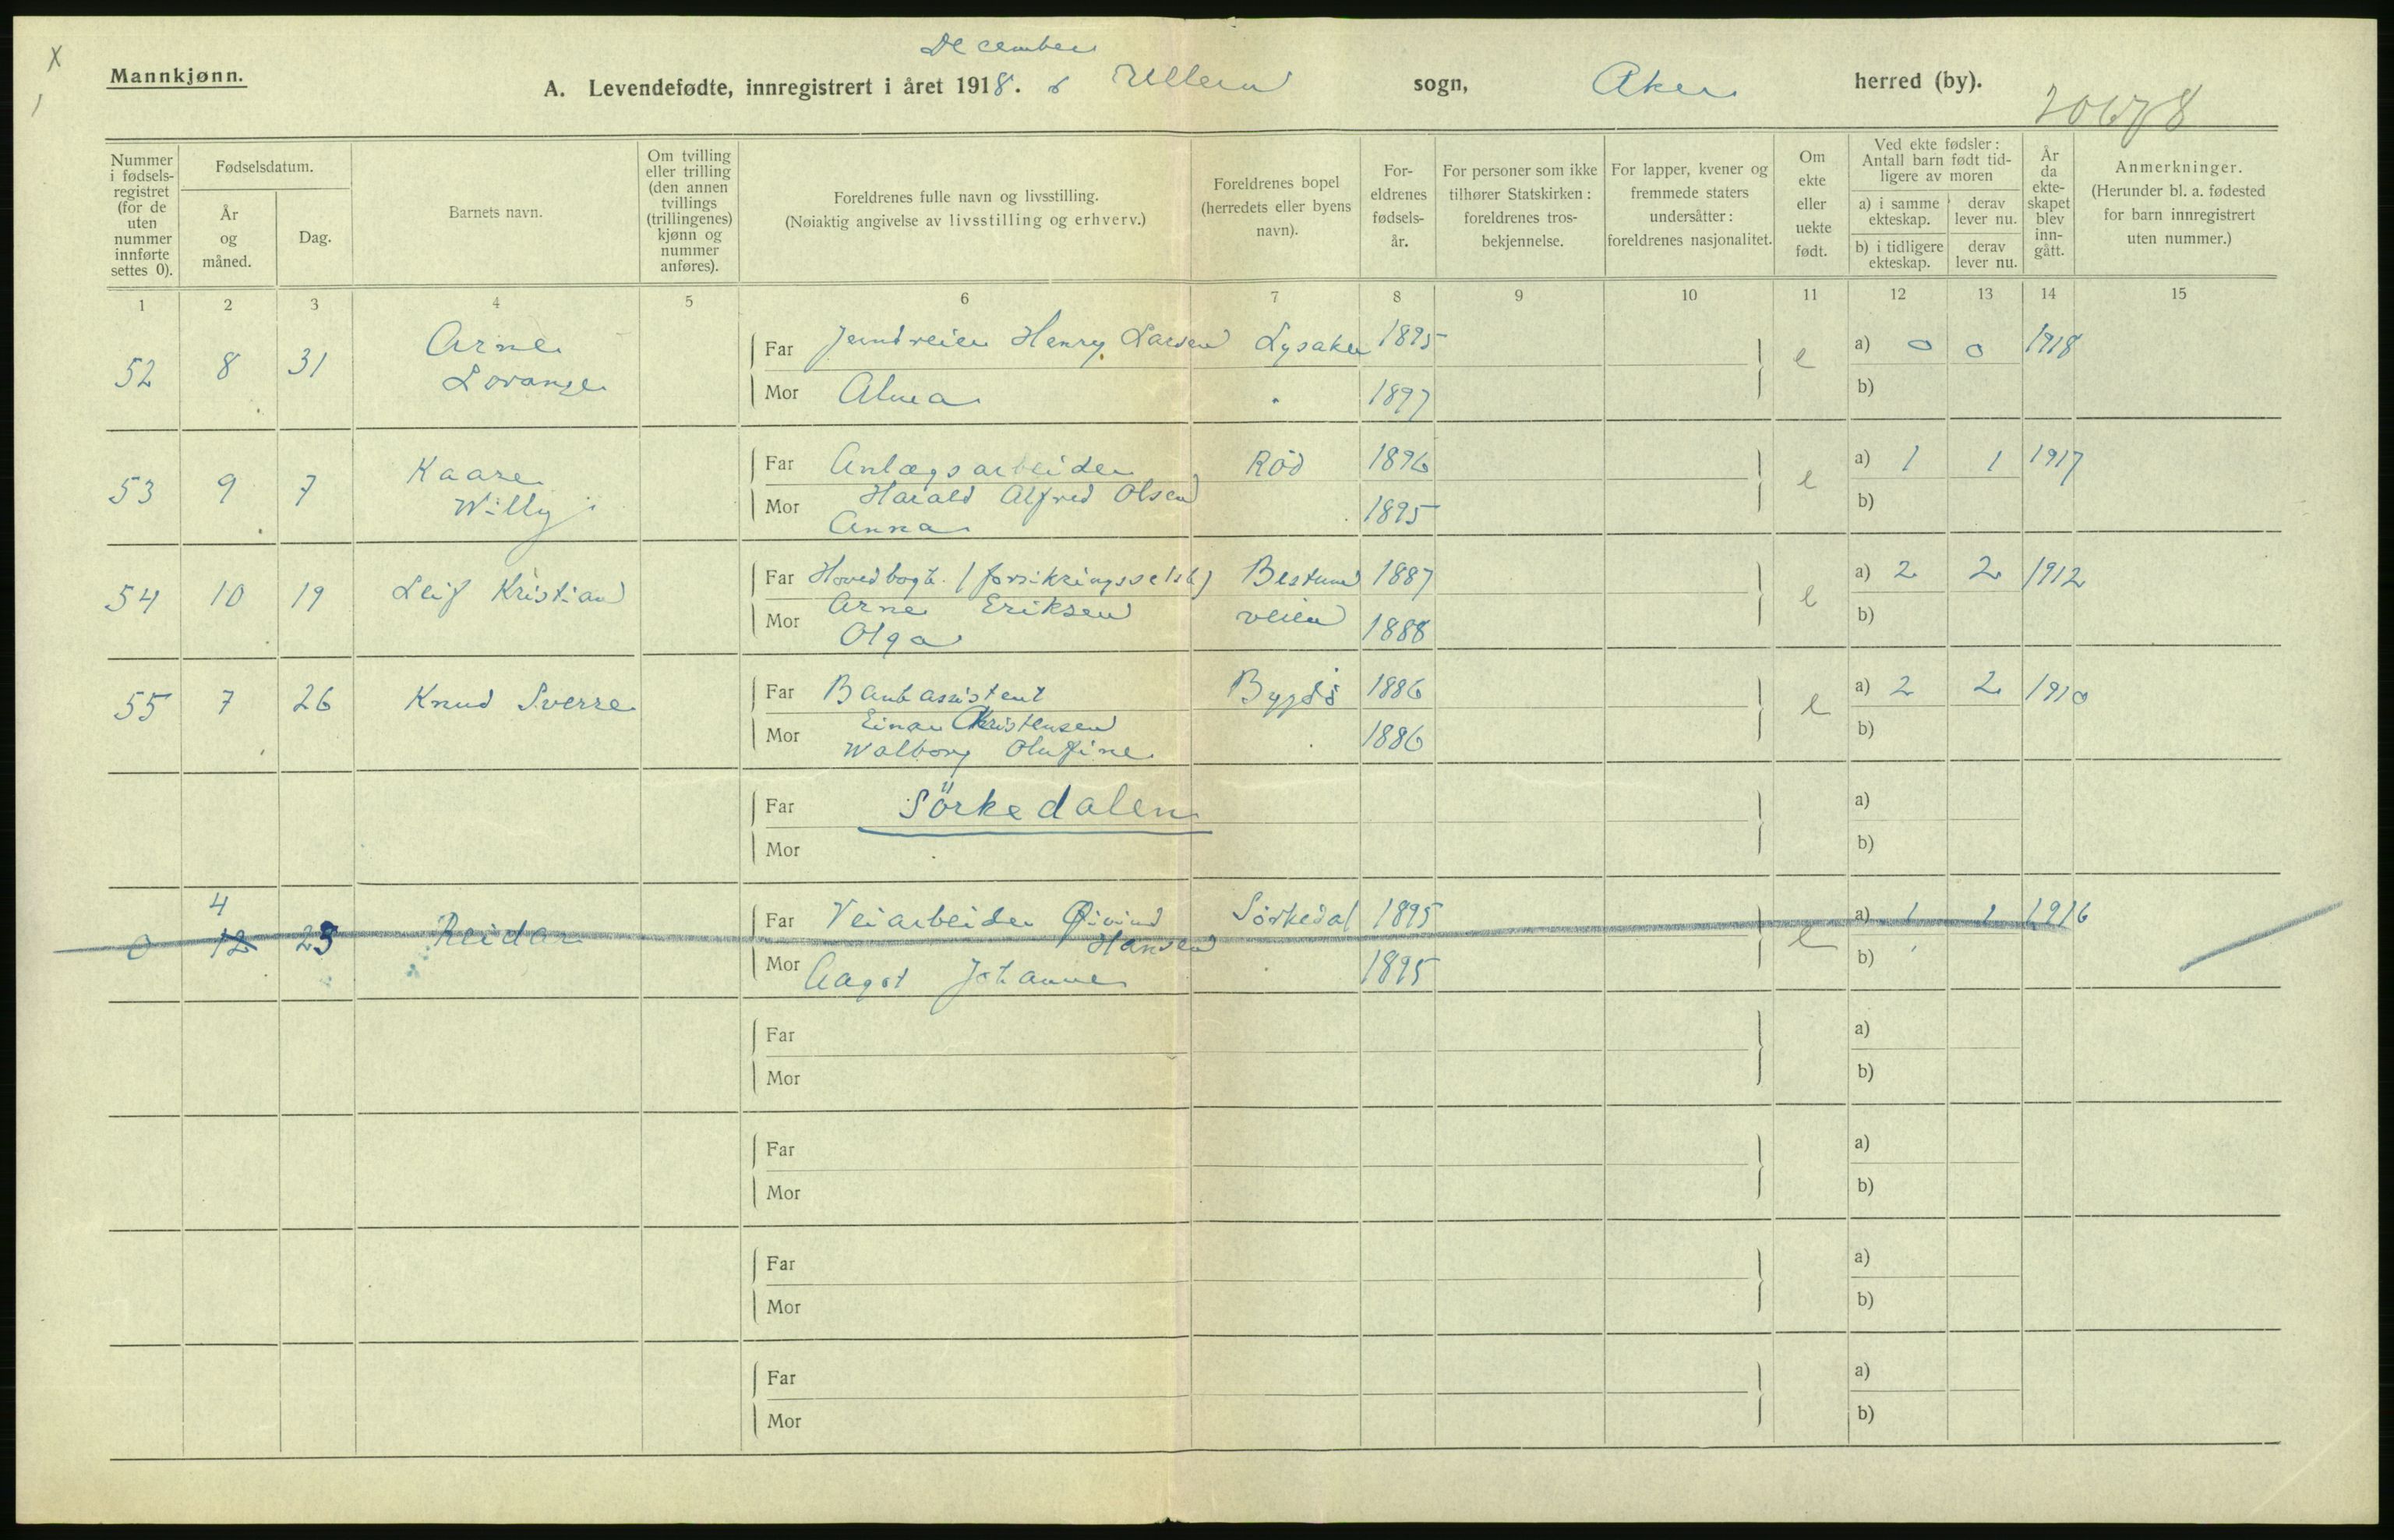 December
Mannkjønn.
A. Levendefødte, innregistrert i året 1918. Ullern sogn, Aker herred (by).
20678
Nummer i fødsels-registret (for de uten nummer innførte settes 0).
Fødselsdatum.
År og måned.
Dag.
Barnets navn.
Om tvilling eller trilling (den annen tvillings (trillingenes) kjønn og nummer anføres).
Foreldrenes fulle navn og livsstilling.
(Nøiaktig angivelse av livsstilling og erhverv.)
Foreldrenes bopel (herredets eller byens navn).
For-eldrenes fødsels-år.
For personer som ikke tilhører Statskirken: foreldrenes tros-bekjennelse.
For lapper, kvener og fremmede staters undersåtter: foreldrenes nasjonalitet.
Om ekte eller uekte født.
Ved ekte fødsler: Antall barn født tid-ligere av moren
a) i samme ekteskap.
derav lever nu.
b) i tidligere ekteskap.
derav lever nu.
År da ekte-skapet blev inn-gått.
Anmerkninger.
(Herunder bl. a. fødested for barn innregistrert uten nummer.)
1 2 3 4 5 6 7 8 9 10 11 12 13 14 15
52 8 31 Arne Lorange
Far Jerndreier Henry Larsen Lysaker 1895 e a) 0 0 1918
Mor Alma 1897 b)
53 9 7 Kaare Willy
Far Anlægsarbeider Rød 1896 e a) 1 1 1917
Harald Alfred Olsen
Mor Anna 1895 b)
54 10 19 Leif Kristian
Far Hovedbogh. (forsikringsselsk) Bestum veien 1887 e a) 2 2 1912
Arne Eriksen
Mor Olga 1888 b)
55 7 26 Knud Sverre
Far Bankassistent Bygdö 1886 e a) 2 2 1910
Einar Christensen
Mor Walborg Olufine 1886 b)
Far Sörkedalen a)
Mor b)
4
0 12 23 Reidar
Far Veiarbeider Øivind Hansen Sörkedal 1895 e a) 1 1 1916
Mor Aagot Johanne 1895 b)
Far a)
Mor b)
Far a)
Mor b)
Far a)
Mor b)
Far a)
Mor b)